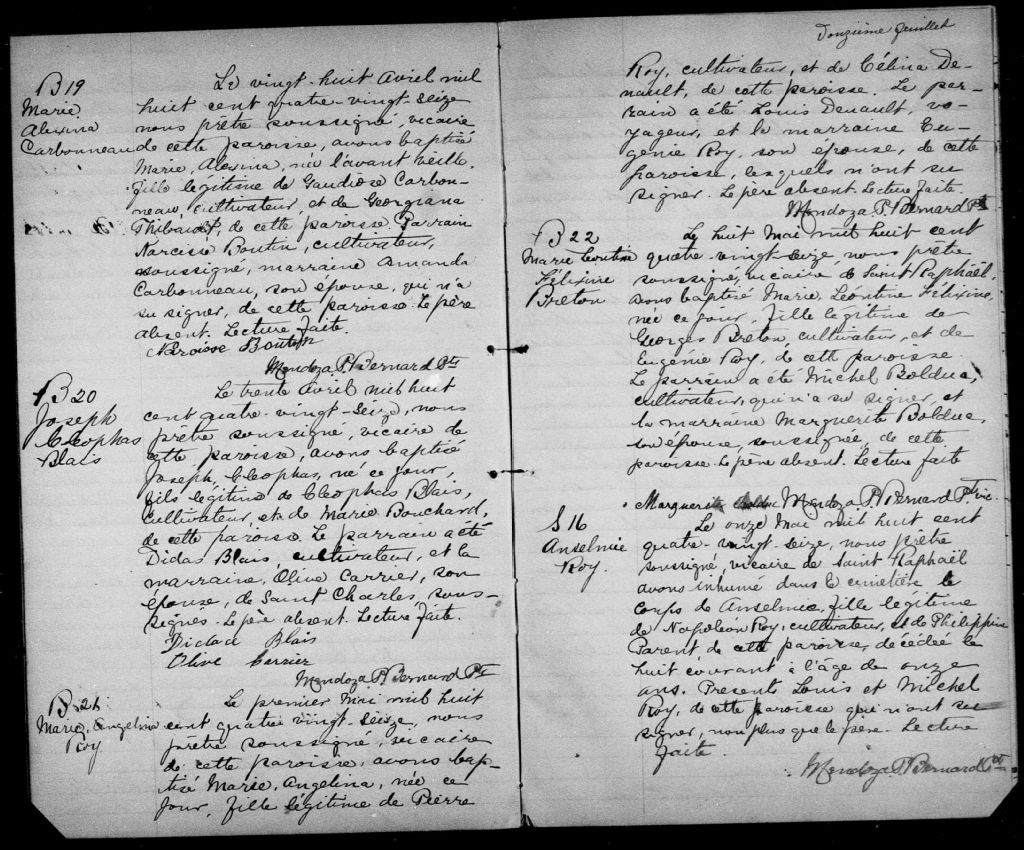 B 19
Marie
Alexina
Carbonneau
Le vingt-huit Avril mil
huit cent quatre-vingt-seize
nous prêtre soussigné, vicaire
de cette paroisse, avons baptisé
Marie, Alexina, née l'avant veille
fille légitime de Gaudiose Carbon-
neau, cultivateur, et de Georgiana
Thibault, de cette paroisse. Parrain
Narcisse Boutin, cultivateur,
soussigné, marraine Amanda
Carbonneau, son épouse, qui n'a
su signer, de cette paroisse. Le père
absent. Lecture faite.
Narcisse Boutin
Mendoza P. Bernard Ptre
B 20
Joseph
Cléophas
Blais
Le trente Avril mil huit
cent quatre-vingt-seize, nous
prêtre soussigné, vicaire de
cette paroisse, avons baptisé
Joseph, Cléophas, né ce jour,
fils légitime de Cléophas Blais,
cultivateur, et de Marie Bouchard,
de cette paroisse. Le parrain a été
Didas Blais, cultivateur, et la
marraine, Olive Carrier, son
épouse, de Saint Charles, sous-
signés. Le père absent. Lecture faite.
Blais
Olive Carrier
Mendoza P. Bernard Ptre
B. 21
Marie, Angelina
Roy
Le premier Mai mil huit
cent quatre vingt-seize, nous
prêtre soussigné, vicaire
de cette paroisse, avons bap-
tisé Marie, Angelina, née ce
jour, fille légitime de Pierre
Douzième feuillet
Roy, cultivateur, et de Célina De-
nault, de cette paroisse. Le par-
rain a été Louis Denault, vo-
yageur, et la marraine Eu-
génie Roy, son épouse, de cette
paroisse, lesquels n'ont su
signer. Le père absent. Lecture faite.
Mendoza P. Bernard Ptre
B 22
Marie Léontine
Félixine
Breton
Le huit Mai mil huit cent
quatre-vingt-seize, nous prêtre
soussigné, vicaire de Saint Raphaël,
avons baptisé Marie, Léontine Félixine,
née ce jour, fille légitime de
Georges Breton, cultivateur, et de
Eugénie Roy, de cette paroisse.
Le parrain a été Michel Bolduc,
cultivateur, qui n'a su signer, et
la marraine Marguerite Bolduc,
son épouse, soussignée, de cette
paroisse. Le père absent. Lecture faite
Marguerite Bolduc Mendoza P. Bernard Ptre vic.
S 16
Anselmie
Roy.
Le onze Mai mil huit cent
quatre-vingt seize, nous prêtre
soussigné, vicaire de Saint Raphaël
avons inhumé dans le cimetière le
corps de Anselmie, fille légitime
de Napoléon Roy, cultivateur, et de Philippine
Parent de cette paroisse, décédée le
huit courant à l'âge de onze
ans. Présents Louis et Michel
Roy, de cette paroisse qui n'ont su
signer, non plus que le père. Lecture
faite.
Mendoza P. Bernard Ptre